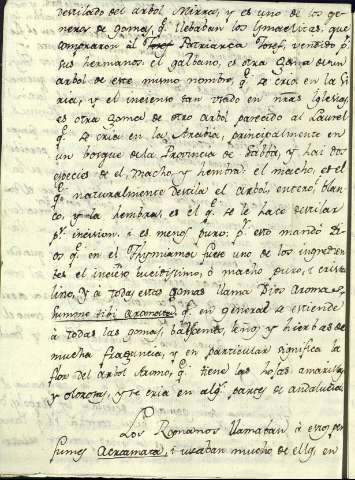 destilado del arbol Mirra, y es uno de los ge-
neros de gomas, q.e llebaban los Ysmaelitas, que
compraron al Patriarca Josef, vendido p.r
sus hermanos. el galbano, es otra goma de un
arbol de este mismo nombre, q.e se cria en la Si-
ria, y el incienso tan usado en nr̃as Iglesias,
es otra goma de otro arbol parecido al Laurel
q.e se cria en la Arabia, principalmente en
un bosque de la Provincia de Sabba, y hai dos
especies de el, macho, y hembra: el macho, es el
q.e naturalmente destila el arbol, entero, blan-
co, y la hembra, es el q.e se le hace destilar
p.r incision. i es menos puro: p.r esto mandó Di-
os q.e en el Thymiama fuese uno de los ingredien-
tes el incienso lucidissimo, ó macho puro, i crista
lino, y à todas estas gomas llama Dios Aromas:
sumito tibi aromata: q.e en general se estiende
à todas las gomas, balsamos, leños, y hierbas de
mucha fragancia, y en particular significa la
flor del arbol Aromo, q.e tiene las hojas amarillas,
y olorosas, y se cria en alg.s partes de Andalucia.
Los Romanos llamaban à estos per-
fumes Acramata, i usaban mucho de ellos en